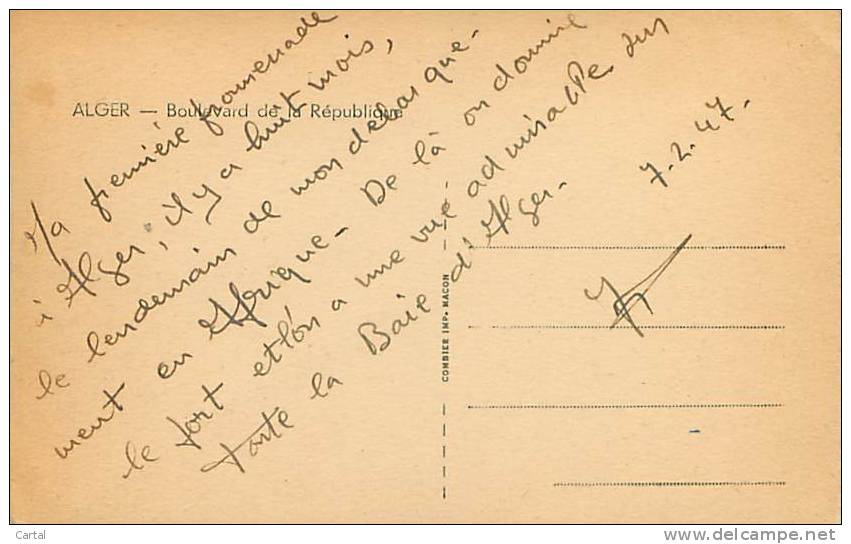 ALGER — Boulevard de la République
Ma première promenade
à Alger, il y a huit mois,
le lendemain de mon débarque-
ment en Afrique - De là on domine
le fort et l'on a une vue admirable sur
toute la Baie d'Alger -
7.2.47.
COMBIER IMP. MACON
Cartal
www.delcampe.net